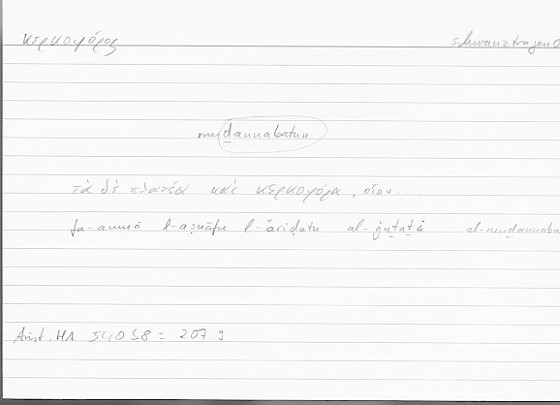 κερκοφόρος schwanztragend
muḏannabatun
τὰ δὲ πλατέα καὶ κερκοφόρα, οἷον...
fa-ammā l-aṣnāfu l-ʿāriḍatu al-muḏannaba
Arist. HA 540 b8 = 207 9